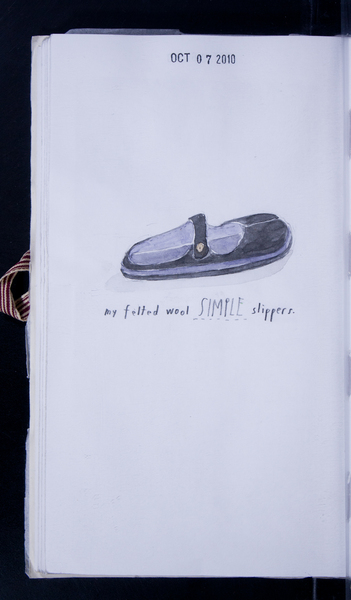 OCT 07 2010
my felted wool SIMPLE slippers.